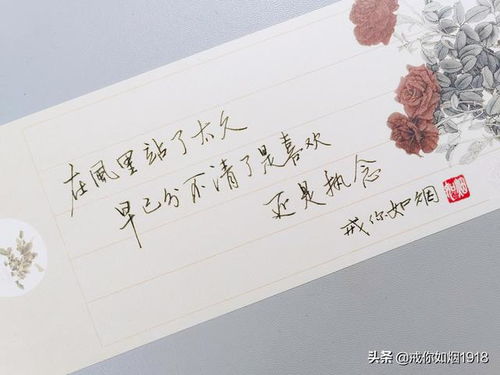 在风里站了太久
早已分不清了是喜欢
还是执念
戒你如烟
头条 @戒你如烟1918